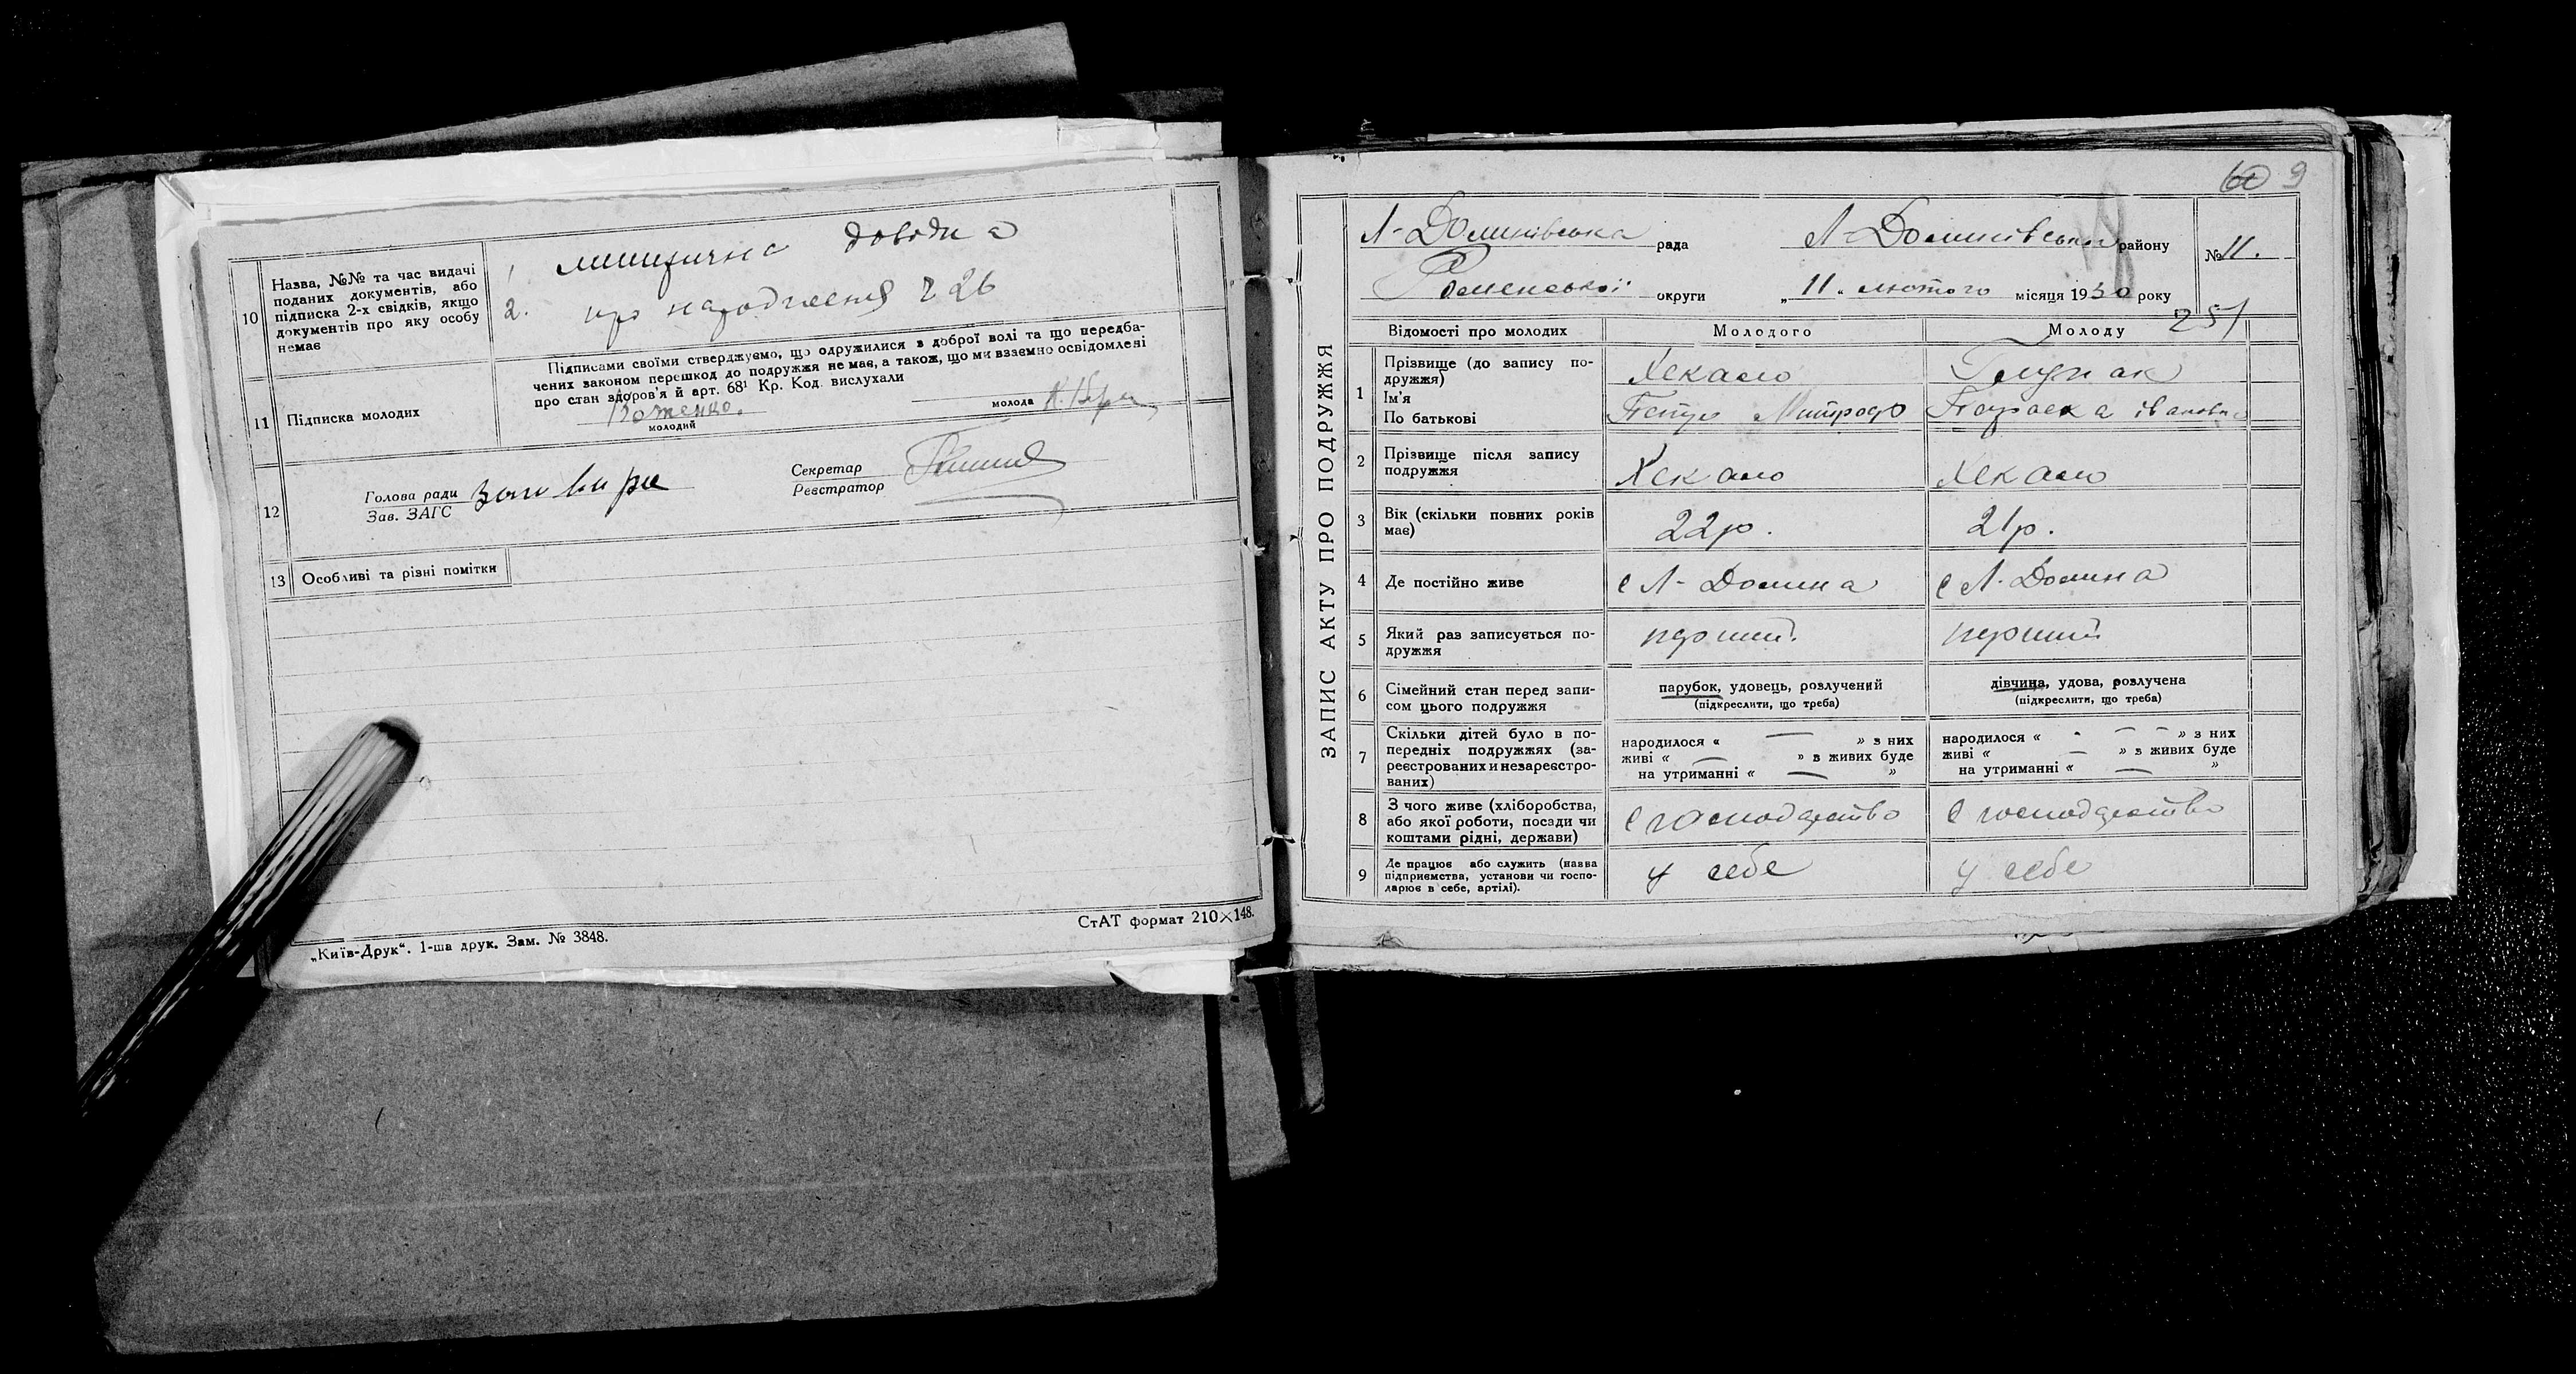 10 Назва, №№ та час видачі
поданих документів, або
підписка 2-х свідків, якщо
документів про яку особу
немає
1
2. про народження 26
11 Підписка молодих
Підписами своїми стверджуємо, що одружилися в доброї волі та що передба-
чених законом перешкод до подружжя немає, а також, що ми взаємно освідомлені
про стан здоров'я й арт. 68¹ Кр. Код. вислухали
молодий
молода
12 Голова ради
Зав. ЗАГС
Секретар
Реєстратор
13 Особливі та різні помітки
„Київ-Друк“. 1-ша друк. Зам. № 3848.
СтАТ формат 210×148.
60 9
ЗАПИС АКТУ ПРО ПОДРУЖЖЯ
Л-Долинівська рада Л-Долинівського району № 11.
Роменської округи „11“ лютого місяця 1930 року
251
Відомості про молодих Молодого Молоду
1 Прізвище (до запису по-
дружжя)
Ім'я
По батькові
Хекало
Петро Митроф
Параска Івановна
2 Прізвище після запису
подружжя
Хекало Хекало
3 Вік (скільки повних років
має)
22р. 21р.
4 Де постійно живе с Л-Долина с Л. Долина
5 Який раз записується по-
дружжя
перший перший
6 Сімейний стан перед запи-
сом цього подружжя
парубок, удовець, розлучений
(підкреслити, що треба)
дівчина, удова, розлучена
(підкреслити, що треба)
7 Скільки дітей було в по-
передніх подружжях (за-
реєстрованих и незареєстро-
ваних)
народилося « — » з них
живі « — » з живих буде
на утриманні « — »
народилося « - — — » з них
живі « — » з живих буде
на утриманні « — »
8 З чого живе (хліборобства,
або якої роботи, посади чи
коштами рідні, держави)
с господарство с господарство
9 Де працює або служить (назва
підприємства, установи чи госпо-
дарює в себе, артілі).
у себе у себе